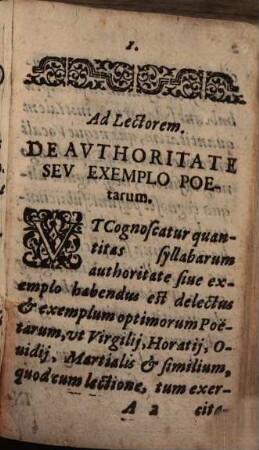 1.
Ad Lectorem.
DE AVTHORITATE
SEV EXEMPLO POE-
tarum.
VT Cognoscatur quan-
titas syllabarum
authoritate siue ex-
emplo habendus est delectus
& exemplum optimorum Poë-
tarum, vt Virgilij, Horatij, O-
uidij, Martialis & similium,
quod cum lectione, tum exer-
A 2 cita-